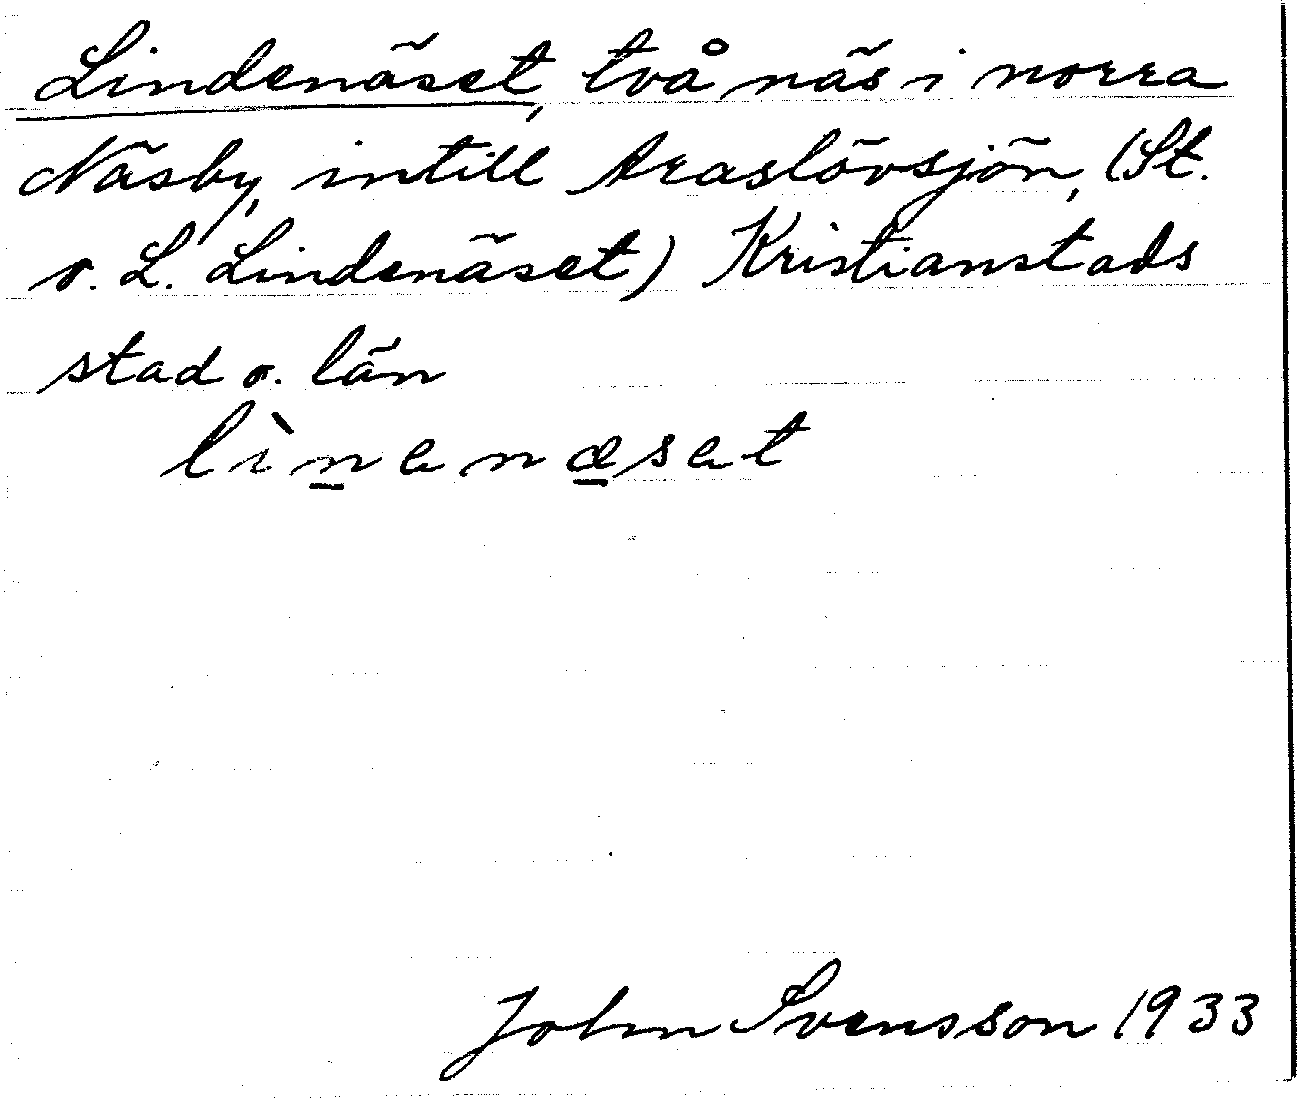 Lindenäset, två näs i norra
Näsby, intill Araslövsjön, (St.
o. L. Lindenäset) Kristianstads
stad o. län
lìn̲anæ̲sat
John Svensson 1933